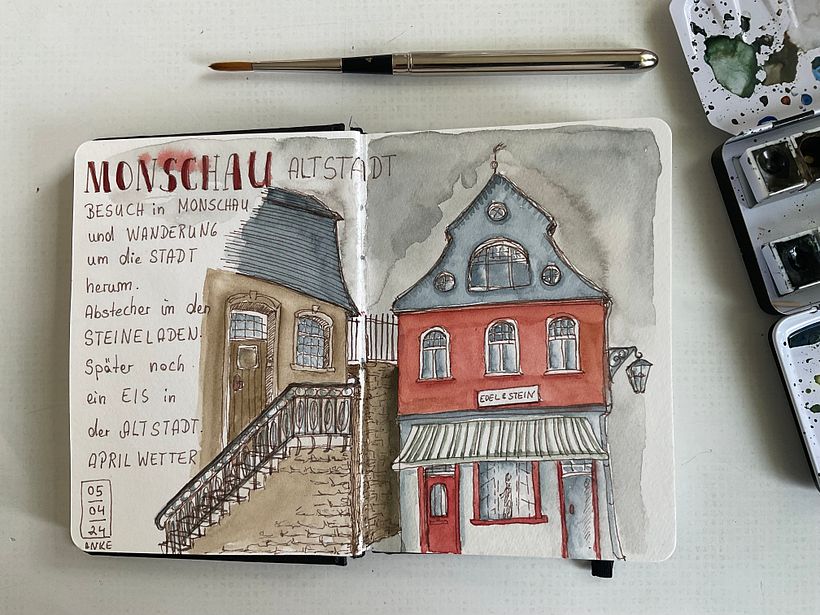 MONSCHAU ALTSTADT
BESUCH in MONSCHAU
und WANDERUNG
um die STADT
herum.
Abstecher in den
STEINELADEN.
Später noch
ein EIS in
der ALTSTADT.
APRILWETTER
05
04
24
ANKE
EDEL & STEIN